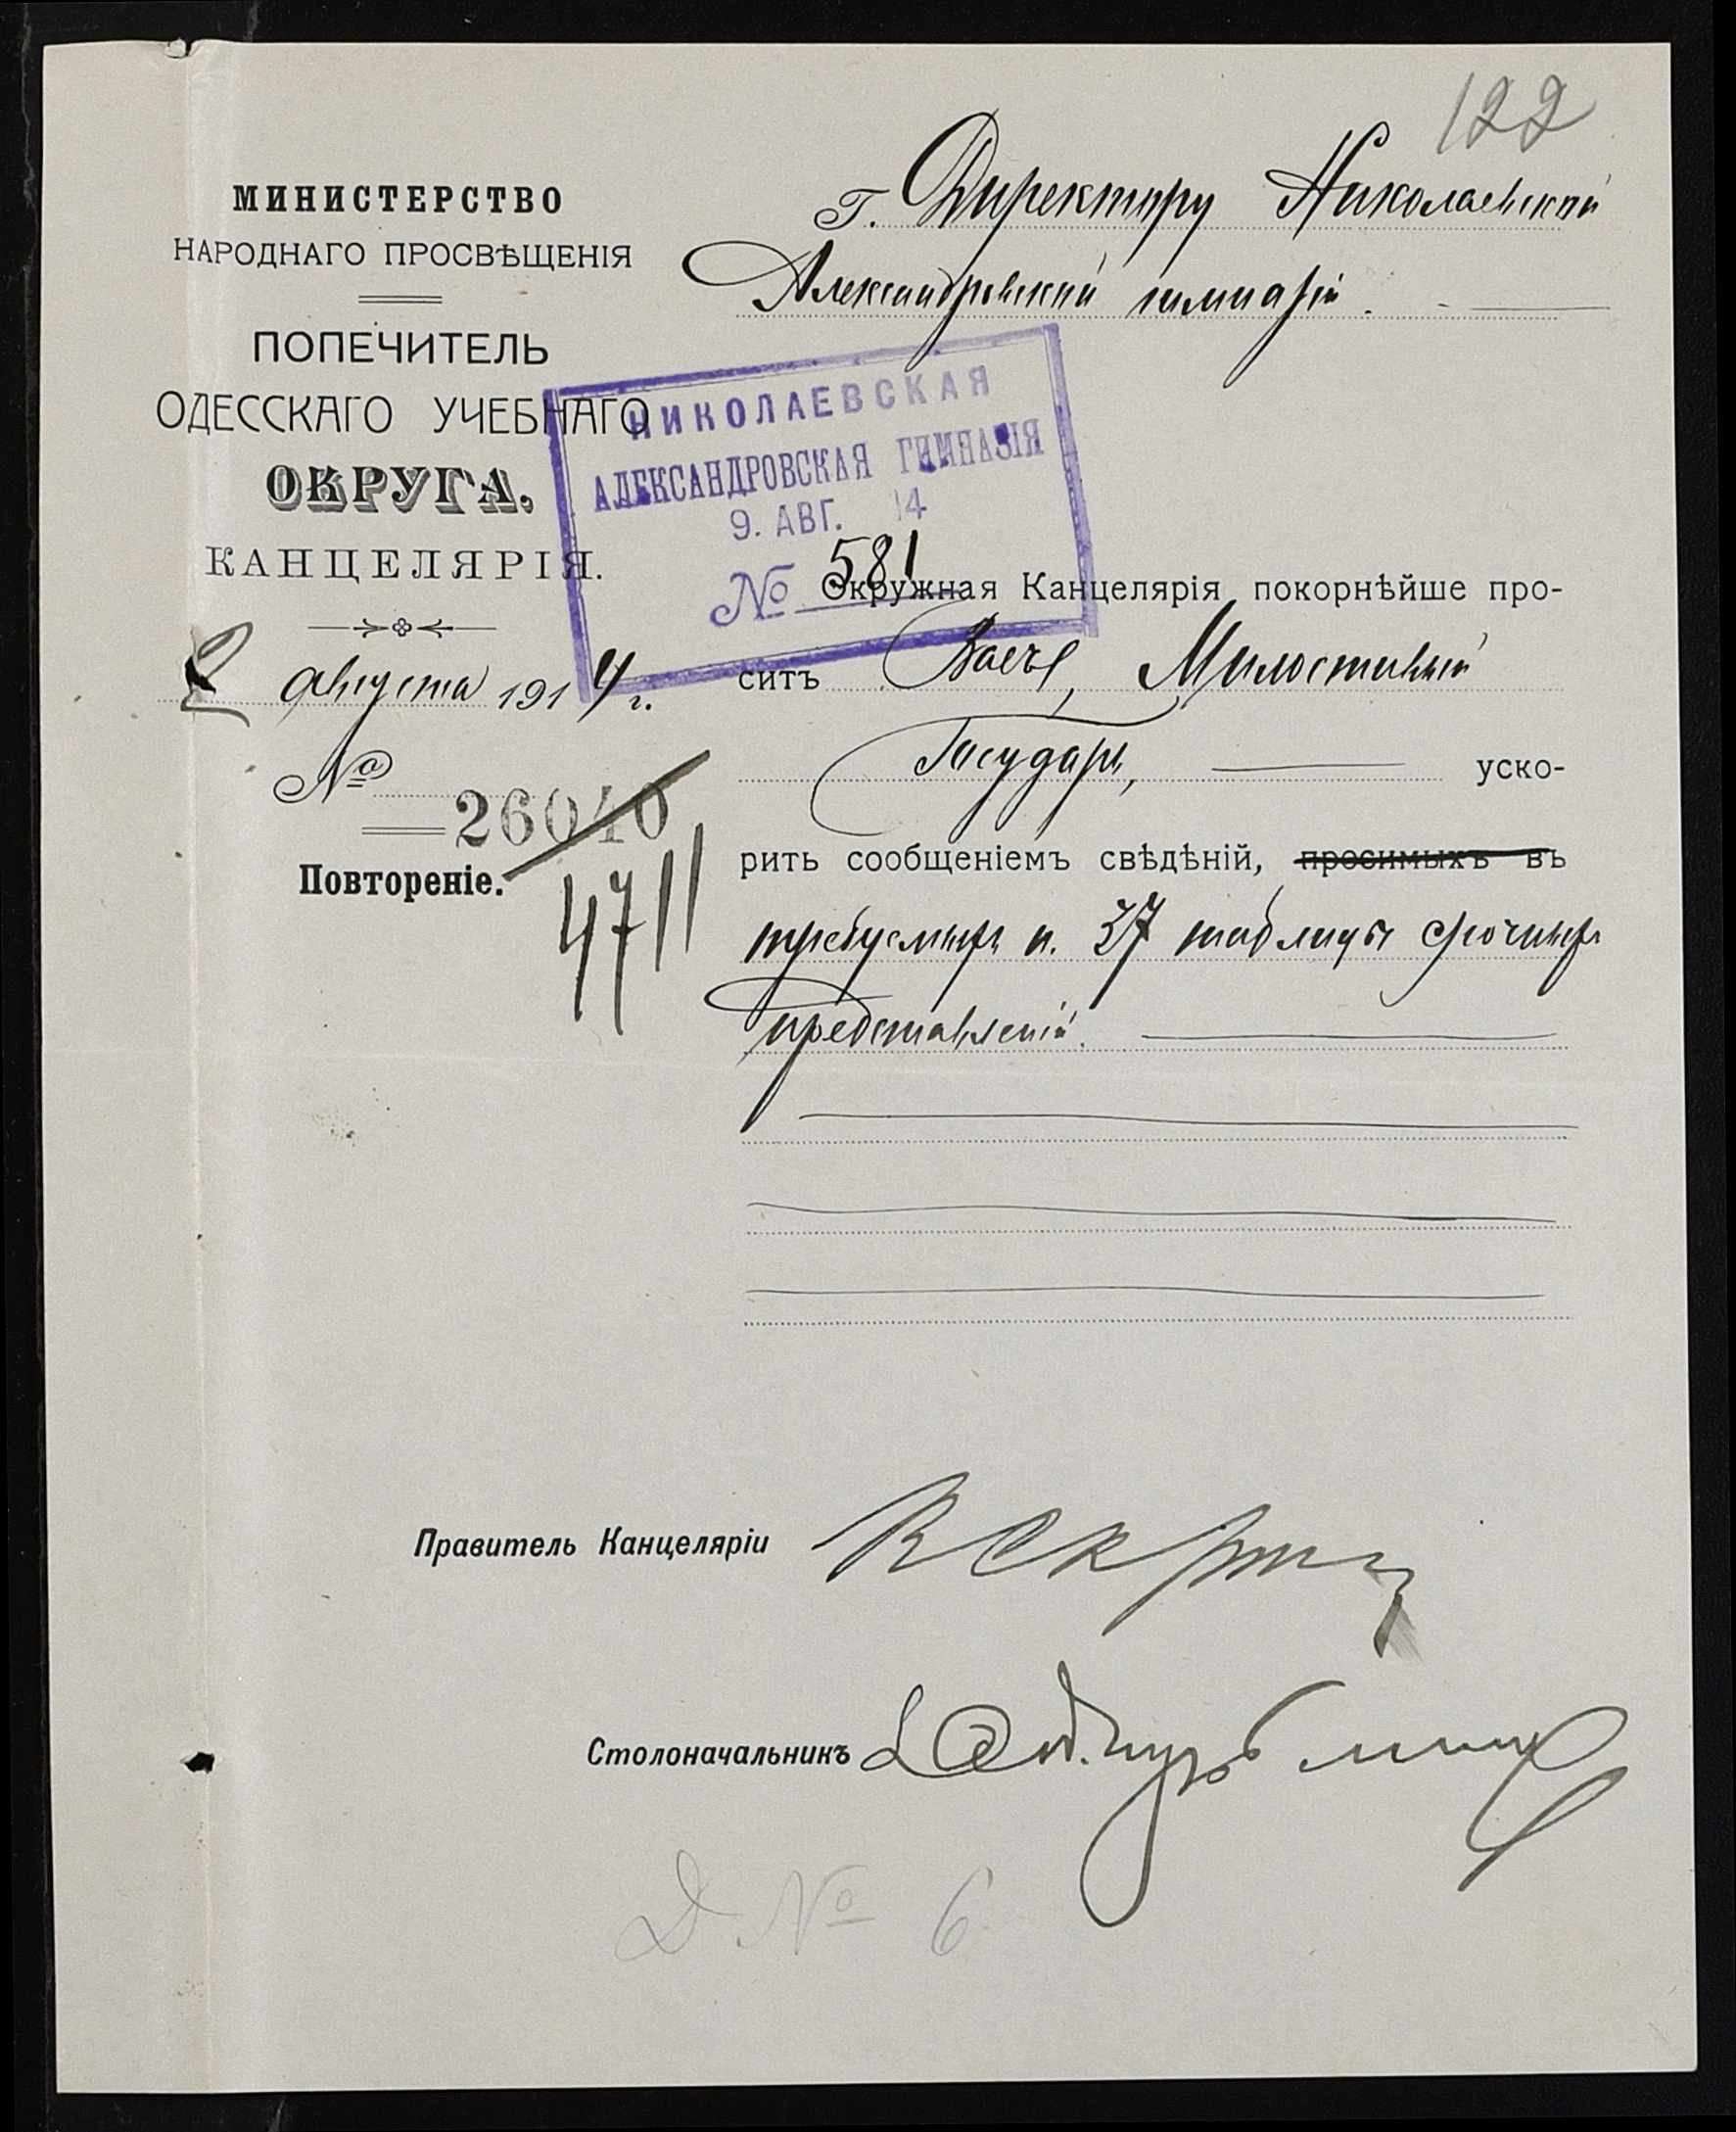 122
МИНИСТЕРСТВО
НАРОДНАГО ПРОСВѢЩЕНІЯ
ПОПЕЧИТЕЛЬ
ОДЕССКАГО УЧЕБНАГО
ОКРУГА.
КАНЦЕЛЯРІЯ.
августа 1914 г.
№ 26040
4711
Повтореніе.
Г. Директору Николаевской
Александровской гимназіи.
НИКОЛАЕВСКАЯ
АЛЕКСАНДРОВСКАЯ ГИМНАЗІЯ
9. АВГ. 14
№ 581
Окружная Канцелярія покорнѣйше про-
ситъ Васъ, Милостивый
Государь, уско-
рить сообщеніемъ свѣдѣній, просимыхъ въ
требуемыхъ п. 37 таблицы срочныхъ
представленій.
Правитель Канцеляріи
Столоначальникъ
Д № 6